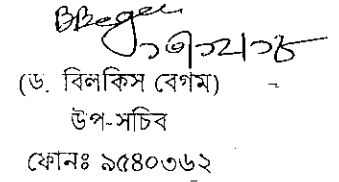 BBegum
(ড. বিলকিস বেগম)
উপ-সচিব
ফোনঃ ৯৫৪০৩৬২